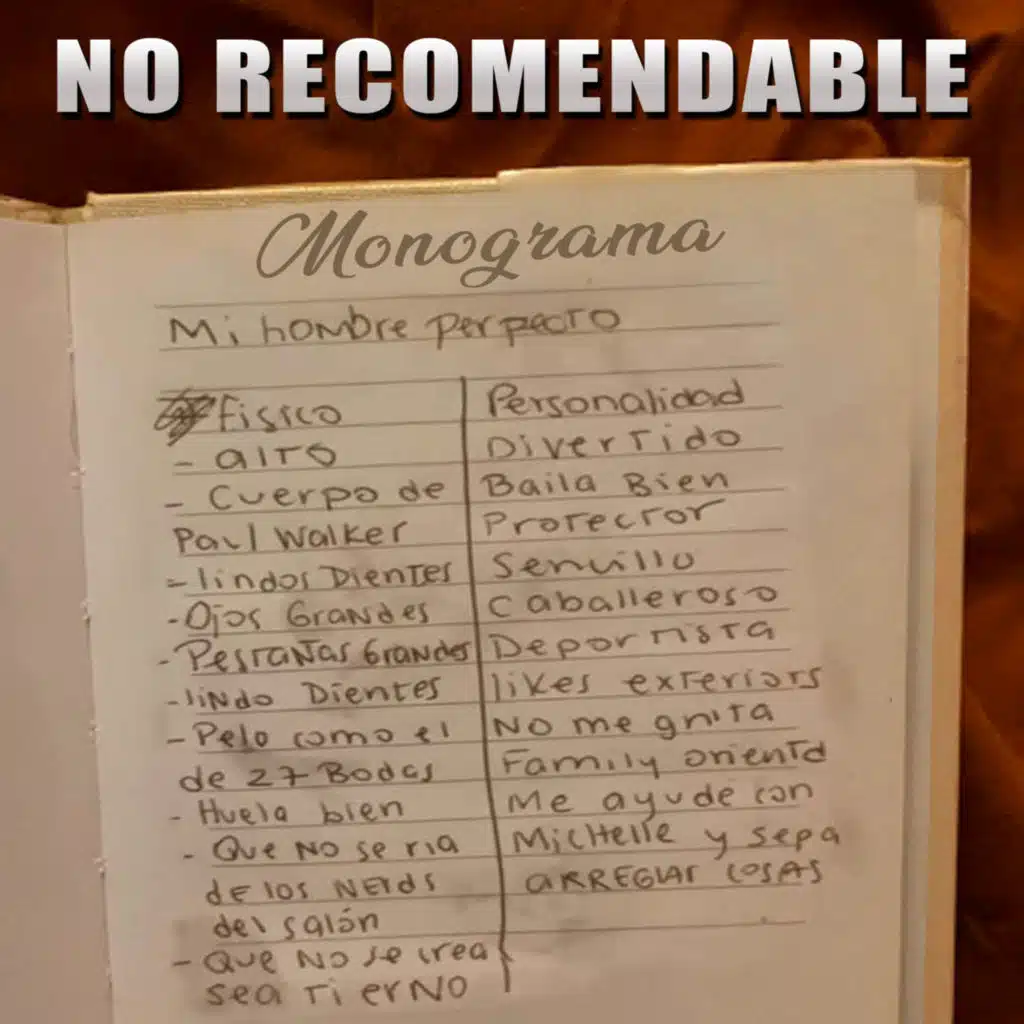 NO RECOMENDABLE
Monograma
Mi hombre perpecto
Fisico
- alto
- Cuerpo de
Paul Walker
- lindos Dientes
- Ojos Grandes
- Pestañas Grandes
- lindo Dientes
- Pelo como el
de 27 Bodas
- Huela bien
- Que No se ria
de los Nerds
del salón
- Que No se crea
sea tierno
Personalidad
Divertido
Baila Bien
Protector
Sencillo
Caballeroso
Deportista
likes exteriors
No me gnita
Family oriented
Me ayude con
Michelle y sepa
ARREGlar cosas